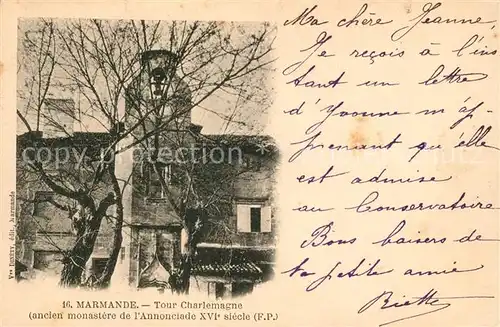 Ma chère Jeanne,
Je reçois à l'ins
tant un lettre
d'Yvonne m'ap
prenant qu'elle
est admise
au Conservatoire
Bons baisers de
ta petite amie
Riette
16. MARMANDE. — Tour Charlemagne
(ancien monastère de l'Annonciade XVIe siècle (F.P.)
édit. Marmande
cparama.com